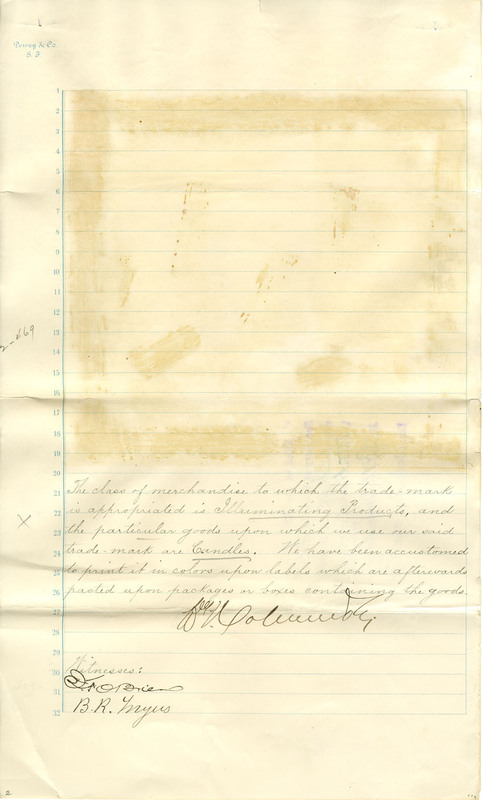 Dewey & Co.
S. F.
1
2
3
4
5
6
7
8
9
10
11
12
13
14
15
16
17
18
19
20
The class of merchandise to which the trade-mark
21
is appropriated is Illuminating Products, and
22
the particular goods upon which we use our said
23
trade-mark are Candles. We have been accustomed
24
to print it in colors upon labels which are afterwards
25
pasted upon packages or boxes containing the goods.
26
27
28
29
Witnesses:
30
31
B. R. Myers
32
2